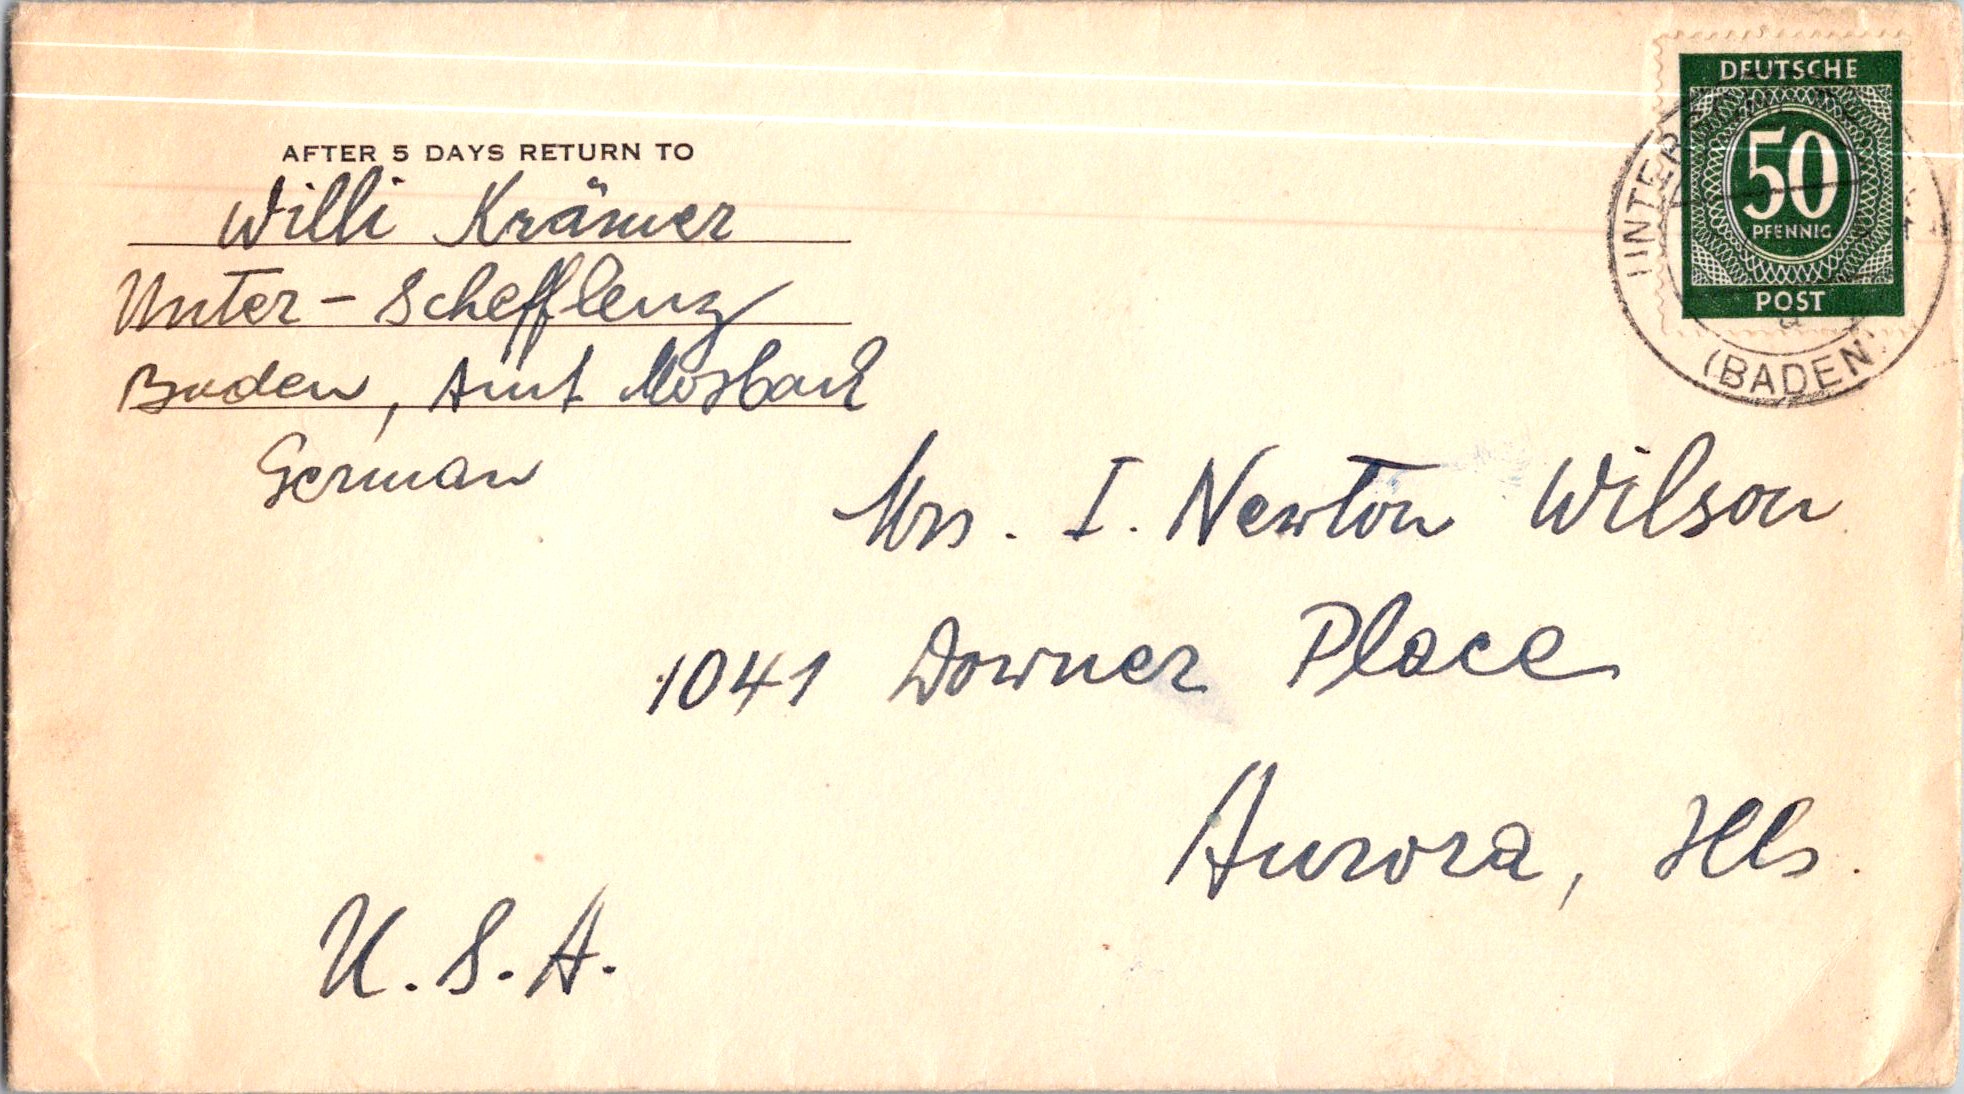 AFTER 5 DAYS RETURN TO
Willi Krämer
Unter-Schefflenz
Baden, Amt Mosbach
German
DEUTSCHE
50
PFENNIG
POST
UNTER
(BADEN)
a
Mrs. I. Newton Wilson
1041 Downer Place
Aurora, Ills.
U.S.A.